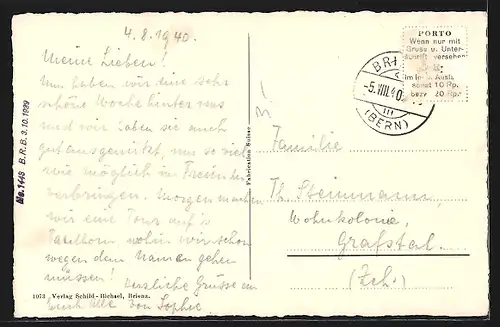 4.8.1940.
Meine Lieben!
Nun haben wir eine sehr
schöne Woche hinter uns
und wir haben sie auch
gut ausgenützt, um so viel
wie möglich im Freien zu
verbringen. Morgen machen
wir eine Tour auf's
wohin wir schon
wegen dem Namen gehen
müssen! Herzliche Grüsse an
Euch alle von Sophie.
1073 Verlag Schild-Bichsel, Brienz.
No. 1448 B.R.B. 3.10.1939
Fabrication Suisse
PORTO
Wenn nur mit
Gruss u. Unter-
schrift versehen
im In- u. Ausla
sonst 10 Rp.
bezw 20 Rp.
BRI
-5.VIII.40
(BERN)
Familie
Th. Steinmann,
Wohnkolonie,
Grafstal.
(Zch.)